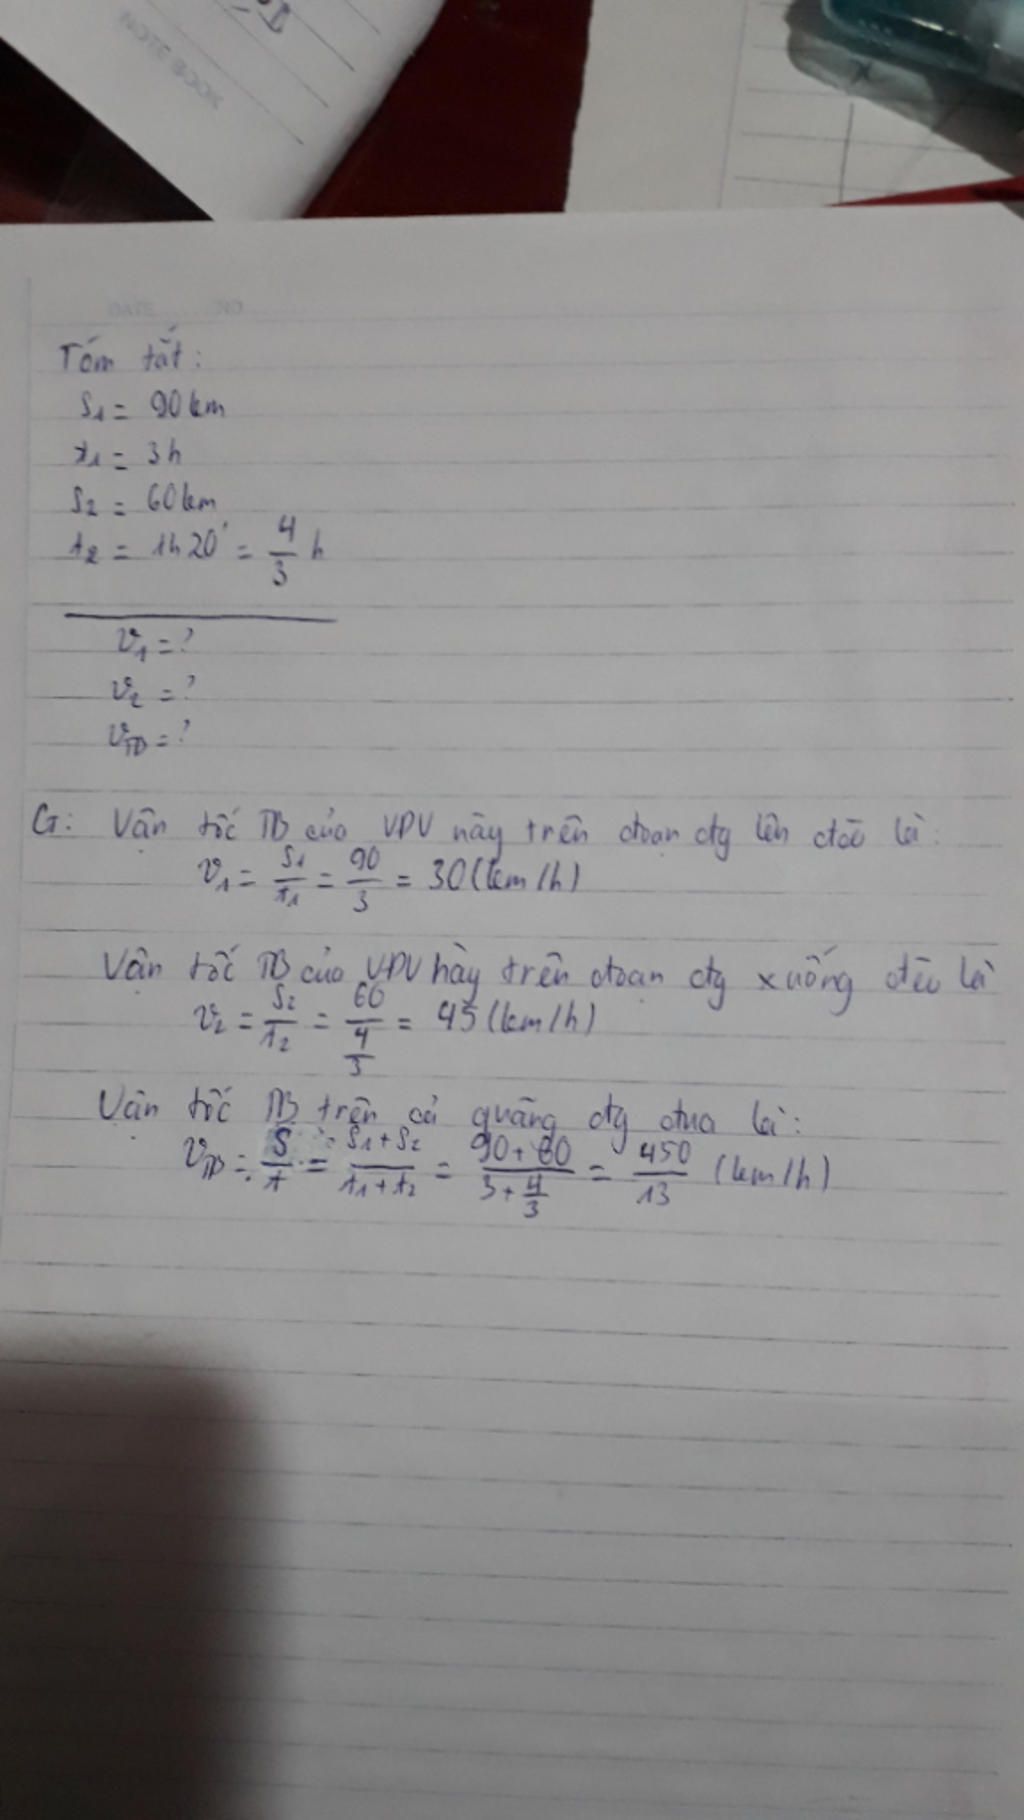 NOTE BOOK
DATE NO
Tóm tắt:
S1 = 90km
t1 = 3h
S2 = 60km
t2 = 1h20' = 4/3 h
v1 = ?
v2 = ?
vTB = ?
G: Vận tốc TB của VĐV này trên đoạn đg lên đèo là:
v1 = S1/t1 = 90/3 = 30(km/h)
Vận tốc TB của VĐV này trên đoạn đg xuống đèo là
v2 = S2/t2 = 60/(4/3) = 45(km/h)
Vận tốc TB trên cả quãng đg đua là:
vTB = S/t = (S1+S2)/(t1+t2) = (90+60)/(3+4/3) = 450/13 (km/h)